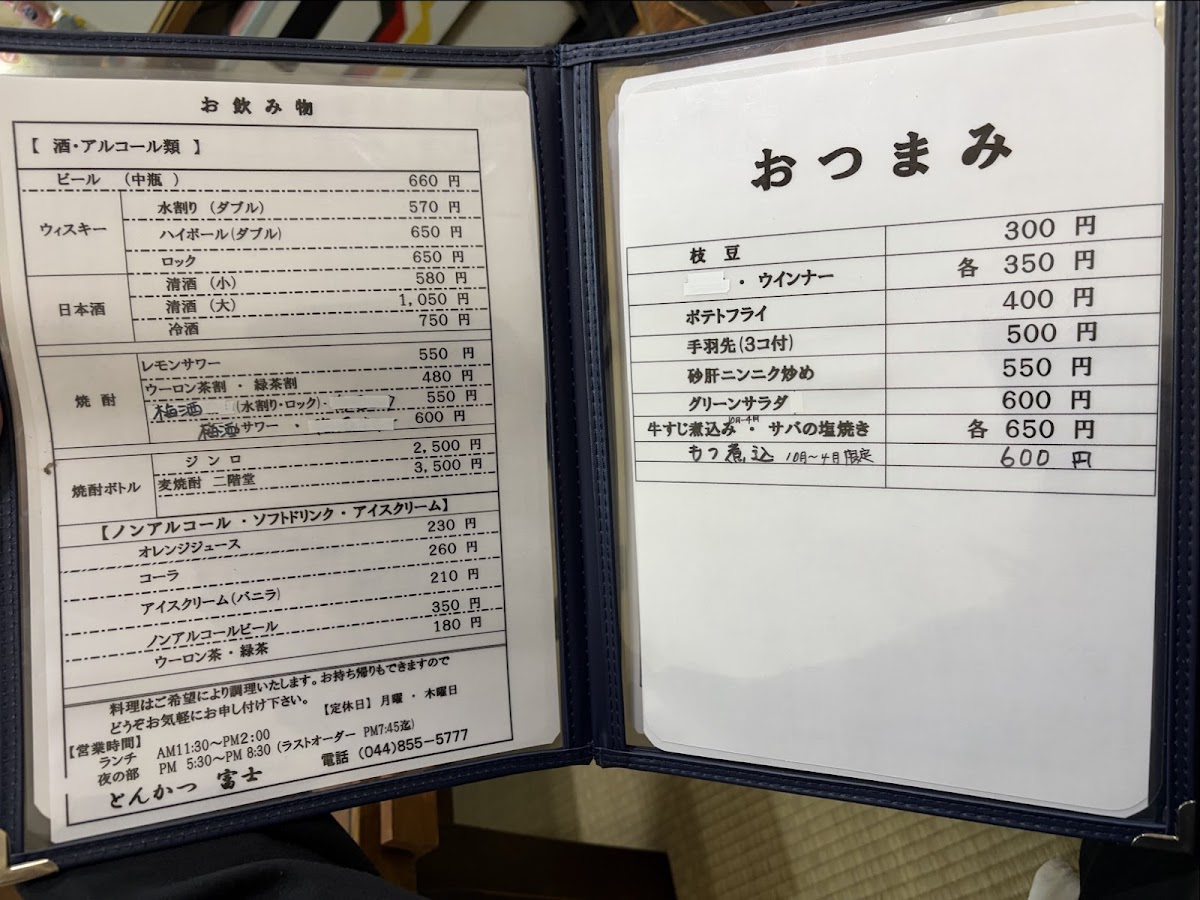 お飲み物
【 酒・アルコール類 】
ビール (中瓶 ) 660 円
ウィスキー
水割り (ダブル) 570 円
ハイボール(ダブル) 650 円
ロック 650 円
日本酒
清酒 (小) 580 円
清酒 (大) 1,050 円
冷酒 750 円
焼 酎
レモンサワー 550 円
ウーロン茶割 ・ 緑茶割 480 円
梅酒 (水割り・ロック) 550 円
梅酒サワー ・ 600 円
焼酎ボトル
ジ ン ロ 2,500 円
麦焼酎 二階堂 3,500 円
【ノンアルコール ・ソフトドリンク ・ アイスクリーム】
オレンジジュース 230 円
コーラ 260 円
アイスクリーム(バニラ) 210 円
ノンアルコールビール 350 円
ウーロン茶 ・ 緑茶 180 円
料理はご希望により調理いたします。お持ち帰りもできますので
どうぞお気軽にお申し付け下さい。 【定休日】 月曜 ・ 木曜日
【営業時間】
ランチ AM11:30～PM2:00
夜の部 PM 5:30～PM 8:30 (ラストオーダー PM7:45迄)
とんかつ 富士 電話 (044)855-5777
おつまみ
枝 豆 300 円
・ ウインナー 各 350 円
ポテトフライ 400 円
手羽先(3コ付) 500 円
砂肝ニンニク炒め 550 円
グリーンサラダ 600 円
10月~4月
牛すじ煮込み ・ サバの塩焼き 各 650 円
もつ煮込 10月～4月限定 600 円